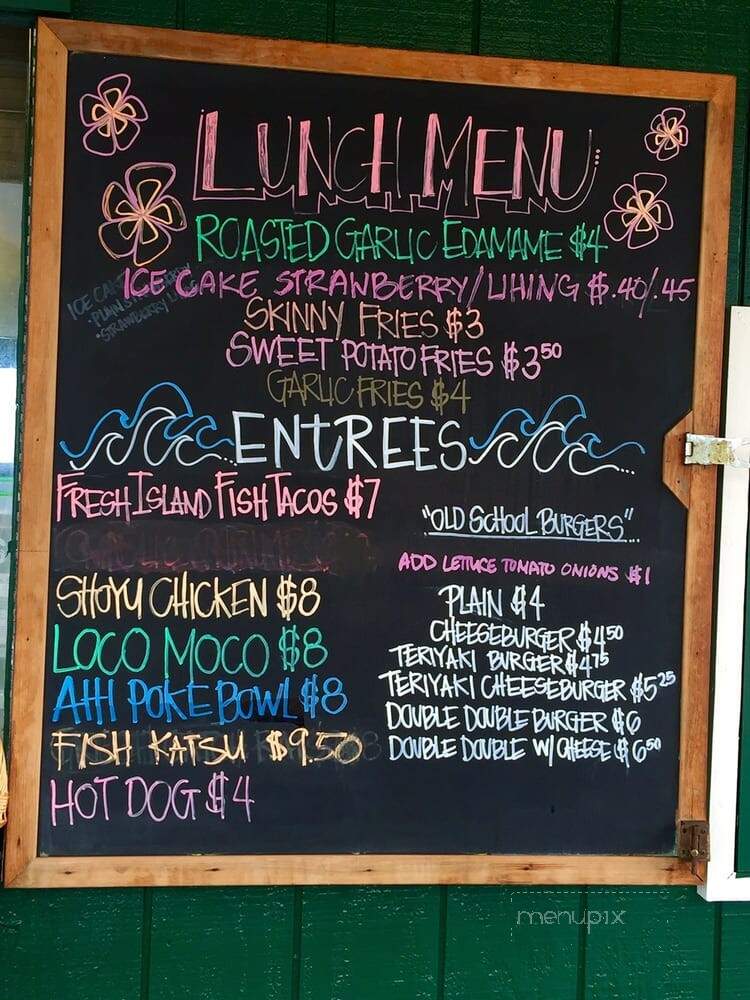 LUNCH MENU...
ROASTED GARLIC EDAMAME $4
ICE CAKE STRAWBERRY/LIHING $.40/.45
ICE CAKE
SKINNY FRIES $3
SWEET POTATO FRIES $3.50
GARLIC FRIES $4
ENTREES
FRESH ISLAND FISH TACOS $7
SHOYU CHICKEN $8
LOCO MOCO $8
AHI POKE BOWL $8
FISH KATSU $9.50
HOT DOG $4
"OLD SCHOOL BURGERS"
ADD LETTUCE TOMATO ONIONS $1
PLAIN $4
CHEESEBURGER $4.50
TERIYAKI BURGER $4.75
TERIYAKI CHEESEBURGER $5.25
DOUBLE DOUBLE BURGER $6
DOUBLE DOUBLE W/ CHEESE $6.50
menupix